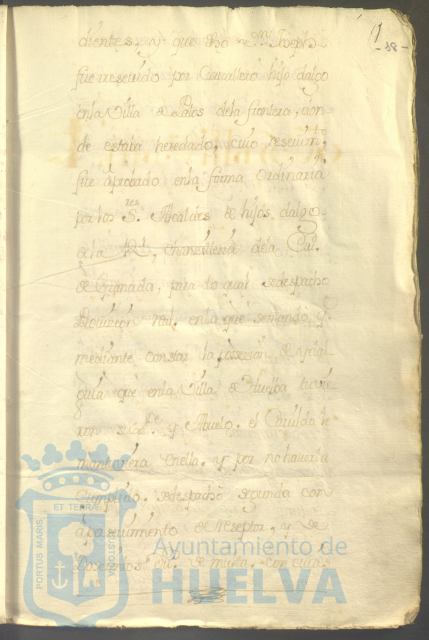 1
-38-
dientes, y que dho
fue rescevido por Cavallero hijo dalgo
en la Villa de Palos de la frontera, don
de estava heredado, cuio rescivim.to
fue aprobado en la forma Ordinaria
por los S.res Alcaldes de hijos dalgo
de la R.l Chancilleria de la Ciu.d
de Granada, para lo qual se despacho
Provicion R.l en la que se mando q.
mediante constar la possesion de
que en la Villa de Huelva tuvie
ron su P.e y Abuelo, el Cavildo le
mantuviera en ella, y por no haverla
Cumplido, se despacho segunda con
apasevimiento de reseptor, y de
de multa, con cuias
PORTUS MARIS
ET TERRAE
CUSTODIA
Ayuntamiento de
HUELVA